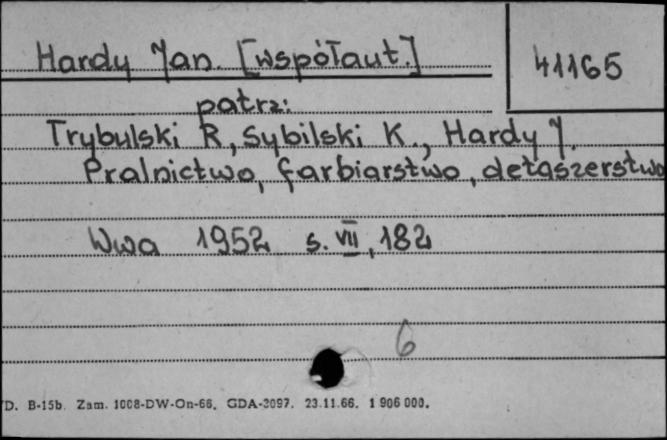 Hardy Jan. [współaut.]
41165
patrz:
Trybulski R, Sybilski K., Hardy J.
Pralnictwo, farbiarstwo, detaszerstwo
Wwa 1952 s. VII, 182
6
D. B-15b. Zam. 1008-DW-On-66. GDA-2097. 23.11.66. 1 906 000.